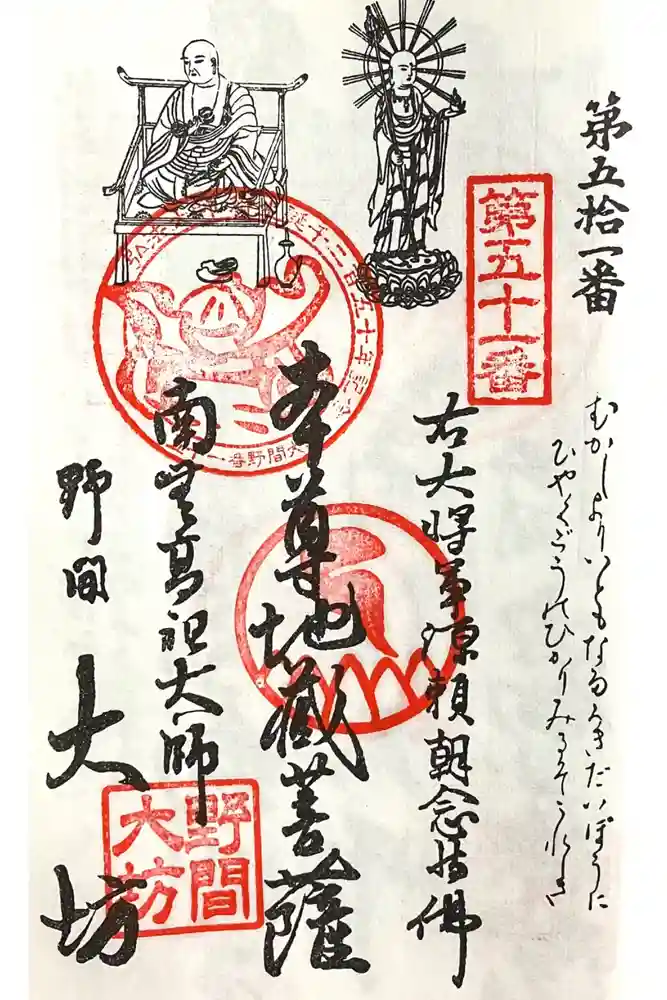 第五拾一番
むかしよりいともなだかきだいぼうに
ひやくごうのひかりみるぞうれしき
第五十一番
右大将軍源頼朝念持佛
本尊地蔵菩薩
南無高祖大師
野間
大坊
野間
大坊